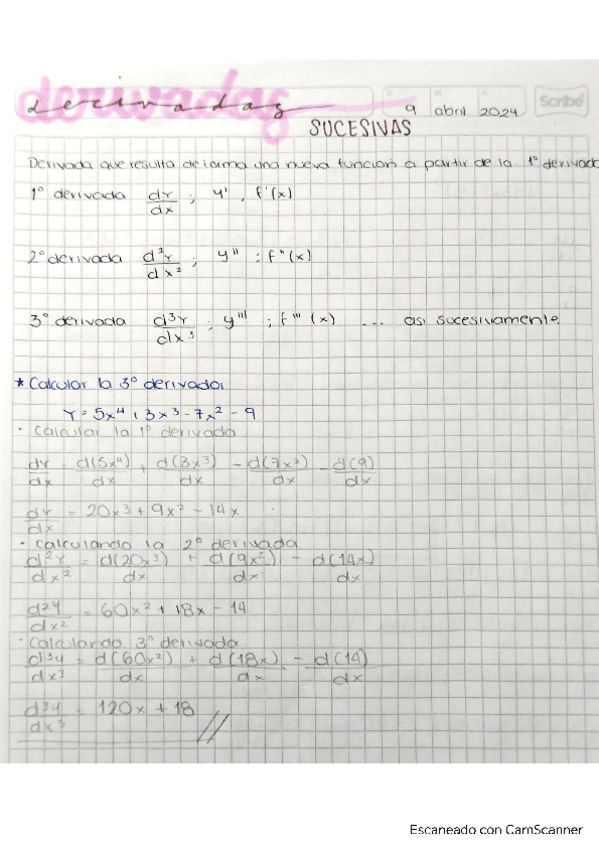 derivadas
D M A
9 abril 2024
Scribe
SUCESIVAS
Derivada que resulta de forma una nueva función a partir de la 1° derivada
1° derivada dY/dx ; y' , f'(x)
2° derivada d²Y/dx² ; y'' ; f''(x)
3° derivada d³Y/dx³ ; y''' ; f'''(x) ... asi sucesivamente.
* Calcular la 3° derivada
Y = 5x⁴ + 3x³ - 7x² - 9
· Calcular la 1° derivada
dY/dx = d(5x⁴)/dx + d(3x³)/dx - d(7x²)/dx - d(9)/dx
dY/dx = 20x³ + 9x² - 14x
· Calculando la 2° derivada
d²Y/dx² = d(20x³)/dx + d(9x²)/dx - d(14x)/dx
d²y/dx² = 60x² + 18x - 14
· Calculando 3° derivada
d³y/dx³ = d(60x²)/dx + d(18x)/dx - d(14)/dx
d³y/dx³ = 120x + 18 //
Escaneado con CamScanner